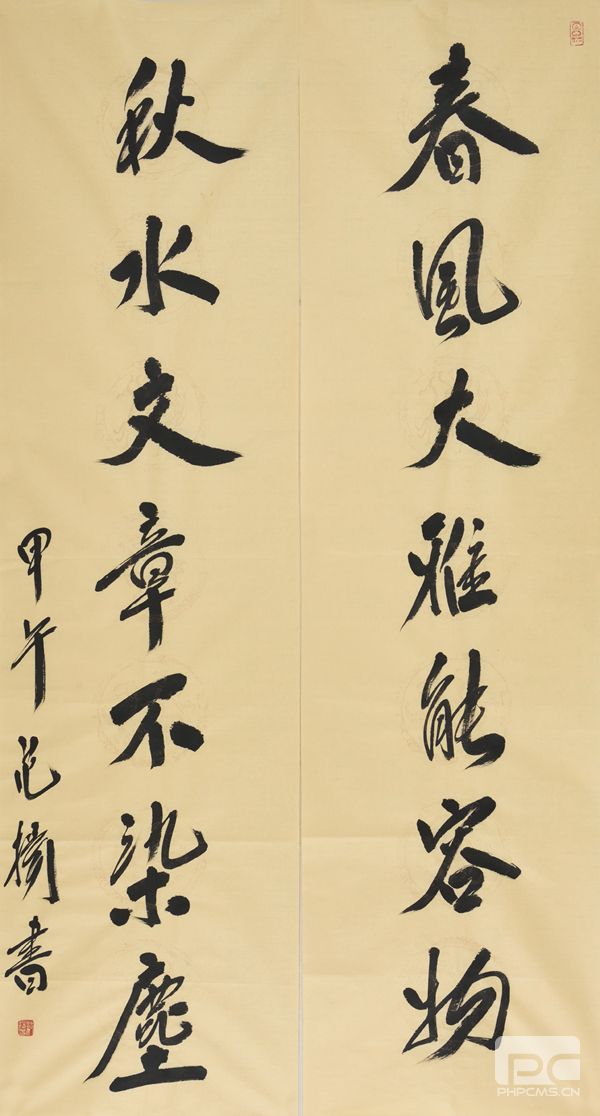 春風大雅能容物
秋水文章不染塵
甲午范楠書
PC
PHPCMS.CN